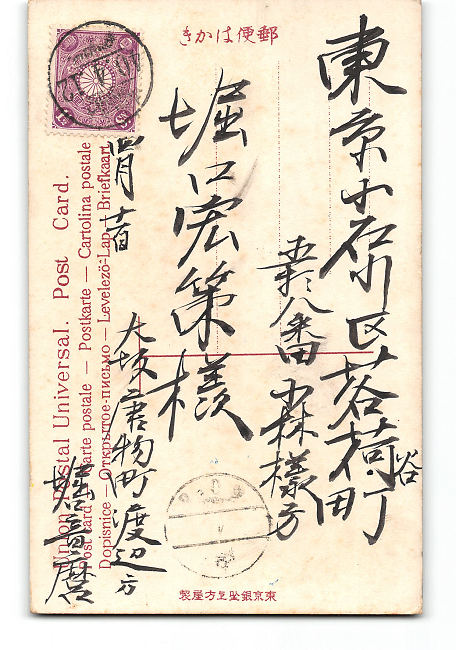 郵便はかき
東京小石川区茗荷谷町
八番 小林様方
堀口宏策様
大坂唐物町渡辺方
堀音麿
Union Postal Universal. Post Card.
Post card — Carte postale — Postkarte — Cartolina postale
Dopisnice — Открытое-письмо — Levelező-Lap — Briefkaart
東京銀座上方屋製